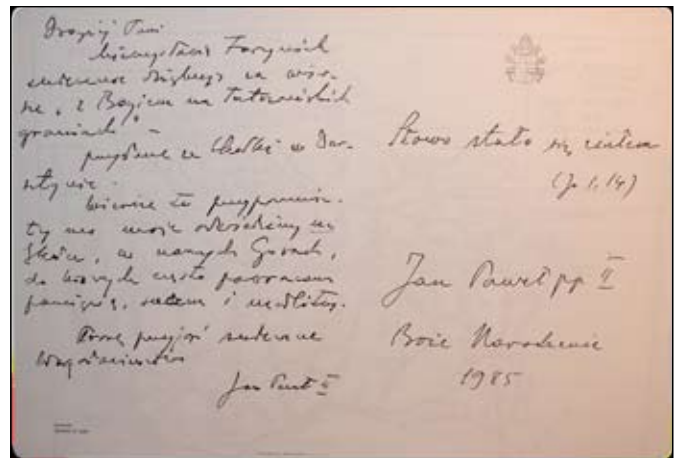 Drogiej Pani
serdecznie dziękuję za wier-
sze „z Bogiem na Tatrzańskich
graniach" –
przysłane ze
Wiersze te przypomnia-
ty mi moje odwiedziny
w naszych Górach,
do których często powracam
pamięcią, sercem i modlitwą.
Proszę przyjąć serdeczne
błogosławieństwo
Jan Paweł II
Słowo stało się ciałem
(J 1, 14)
Jan Paweł pp II
Boże Narodzenie
1985